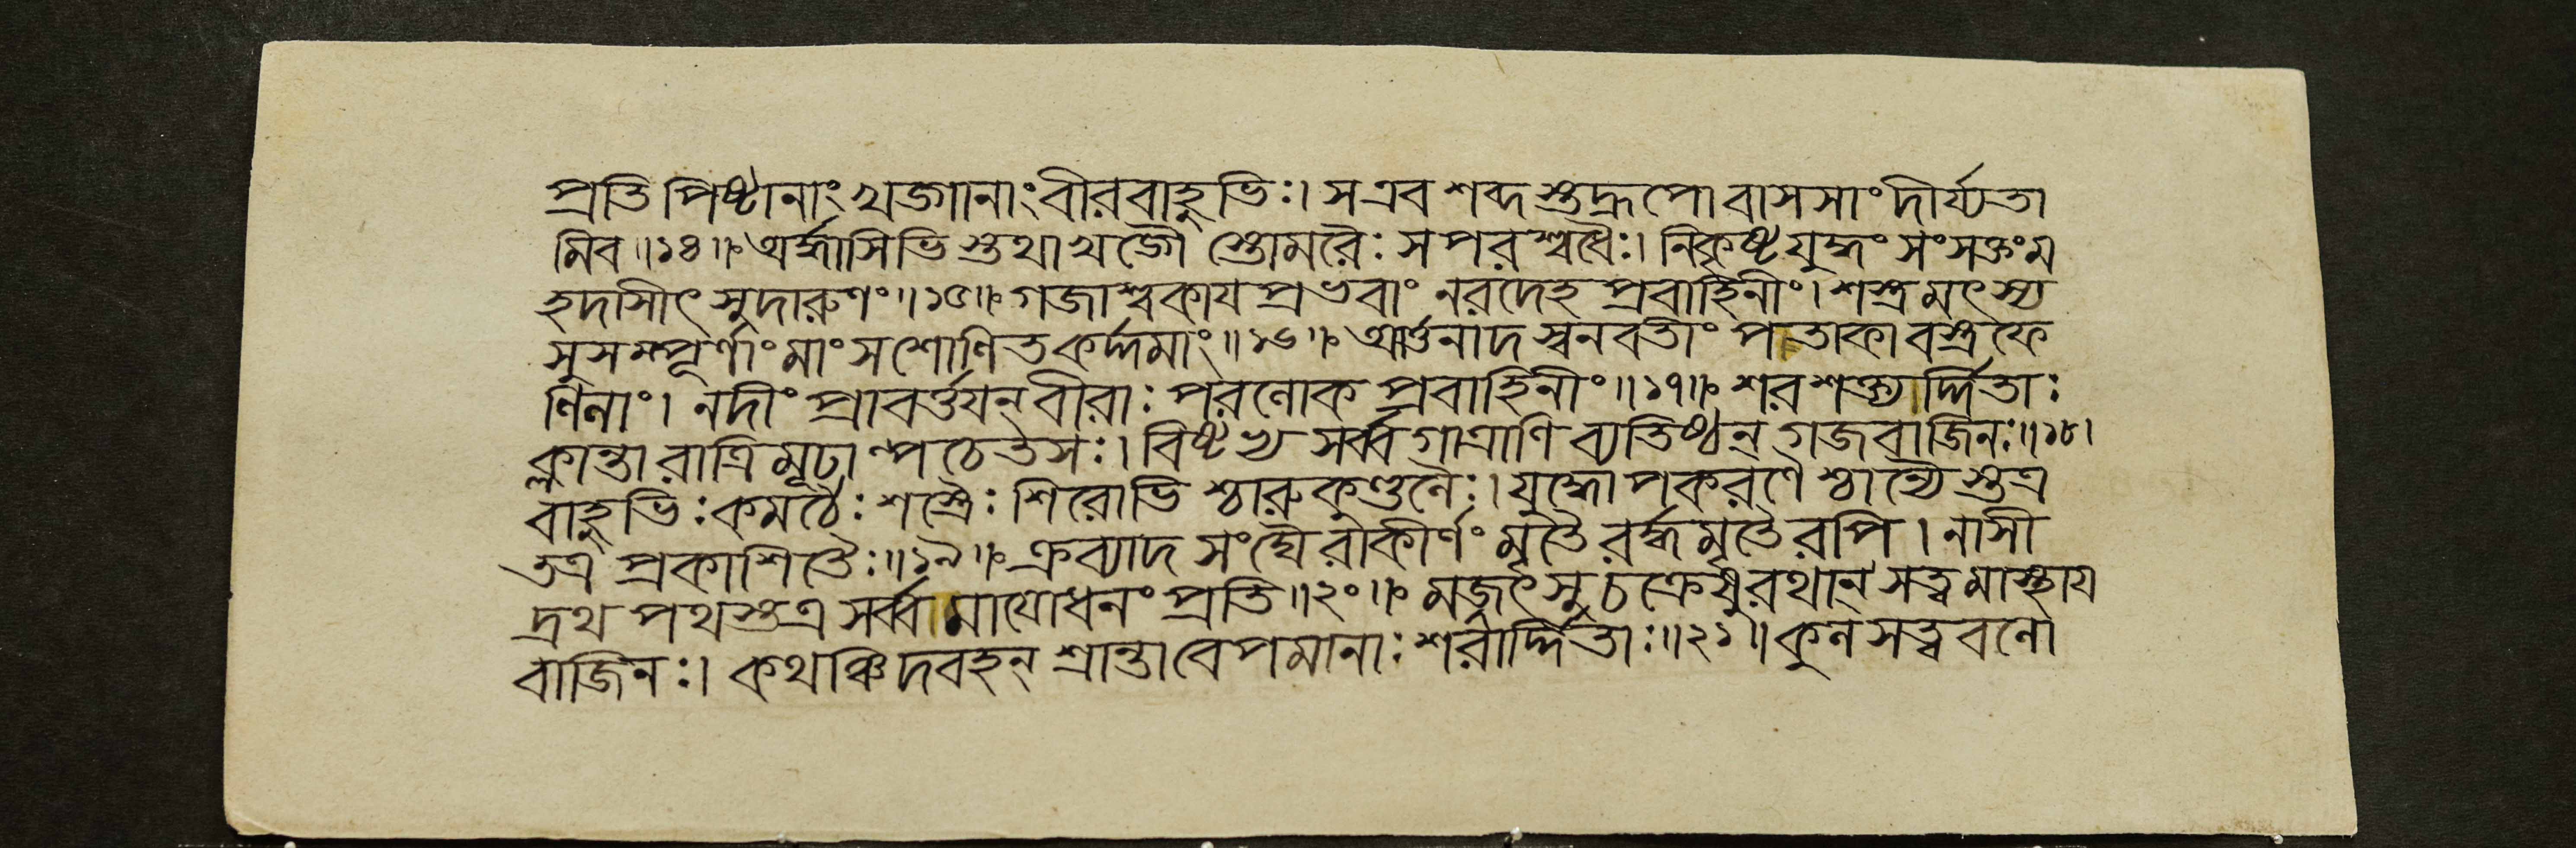 প্রতিপিষ্টানাং খড্গানাং বীরবাহুভিঃ। স এব শব্দস্তদ্রূপো বাসসাং দীর্য্যতা
মিব॥১৪॥ অর্দ্ধাসিভিস্তথা খড্গৈ স্তোমরৈঃ সপরশ্বধৈঃ। নিকৃষ্টযুদ্ধং সংসক্তং ম
হদাসীৎ সুদারুণং॥১৫॥ গজাশ্বকায প্রভবাং নরদেহ প্রবাহিনীং। শস্ত্রমৎস্য
সুসম্পূর্ণাং মাংসশোণিতকর্দ্দমাং॥১৬॥ আর্ত্তনাদ স্বনবতীং পতাকাবস্ত্রফে
ণিনাং। নদীং প্রাবর্ত্তযন্ বীরাঃ পরলোক প্রবাহিনীং॥১৭॥ শরশক্ত্যার্দ্দিতাঃ
ক্লান্তা রাত্রিমূঢাল্পচেতসঃ। বিষ্টভ্য সর্ব্বগাত্রাণি ব্যতিষ্ঠন্ গজবাজিনঃ॥১৮।
বাহুভিঃ কমঠৈঃ শস্ত্রৈঃ শিরোভিশ্চারুকুণ্ডলৈঃ। যুদ্ধোপকরণৈশ্চান্যৈস্তত্র
তত্র প্রকাশিতৈঃ॥১৯॥ ক্রব্যাদ সংঘৈরাকীর্ণং মৃতৈরর্দ্ধমৃতৈরপি। নাসী
দ্রথ পথস্তত্র সর্ব্বমাযোধনং প্রতি॥২০॥ মজ্জৎসু চক্রেষু রথান্ সত্ত্বমাস্থায
বাজিনঃ। কথঞ্চিদবহন্ শ্রান্তা বেপমানাঃ শরার্দ্দিতাঃ॥২১॥ কুলসত্ত্ববলো